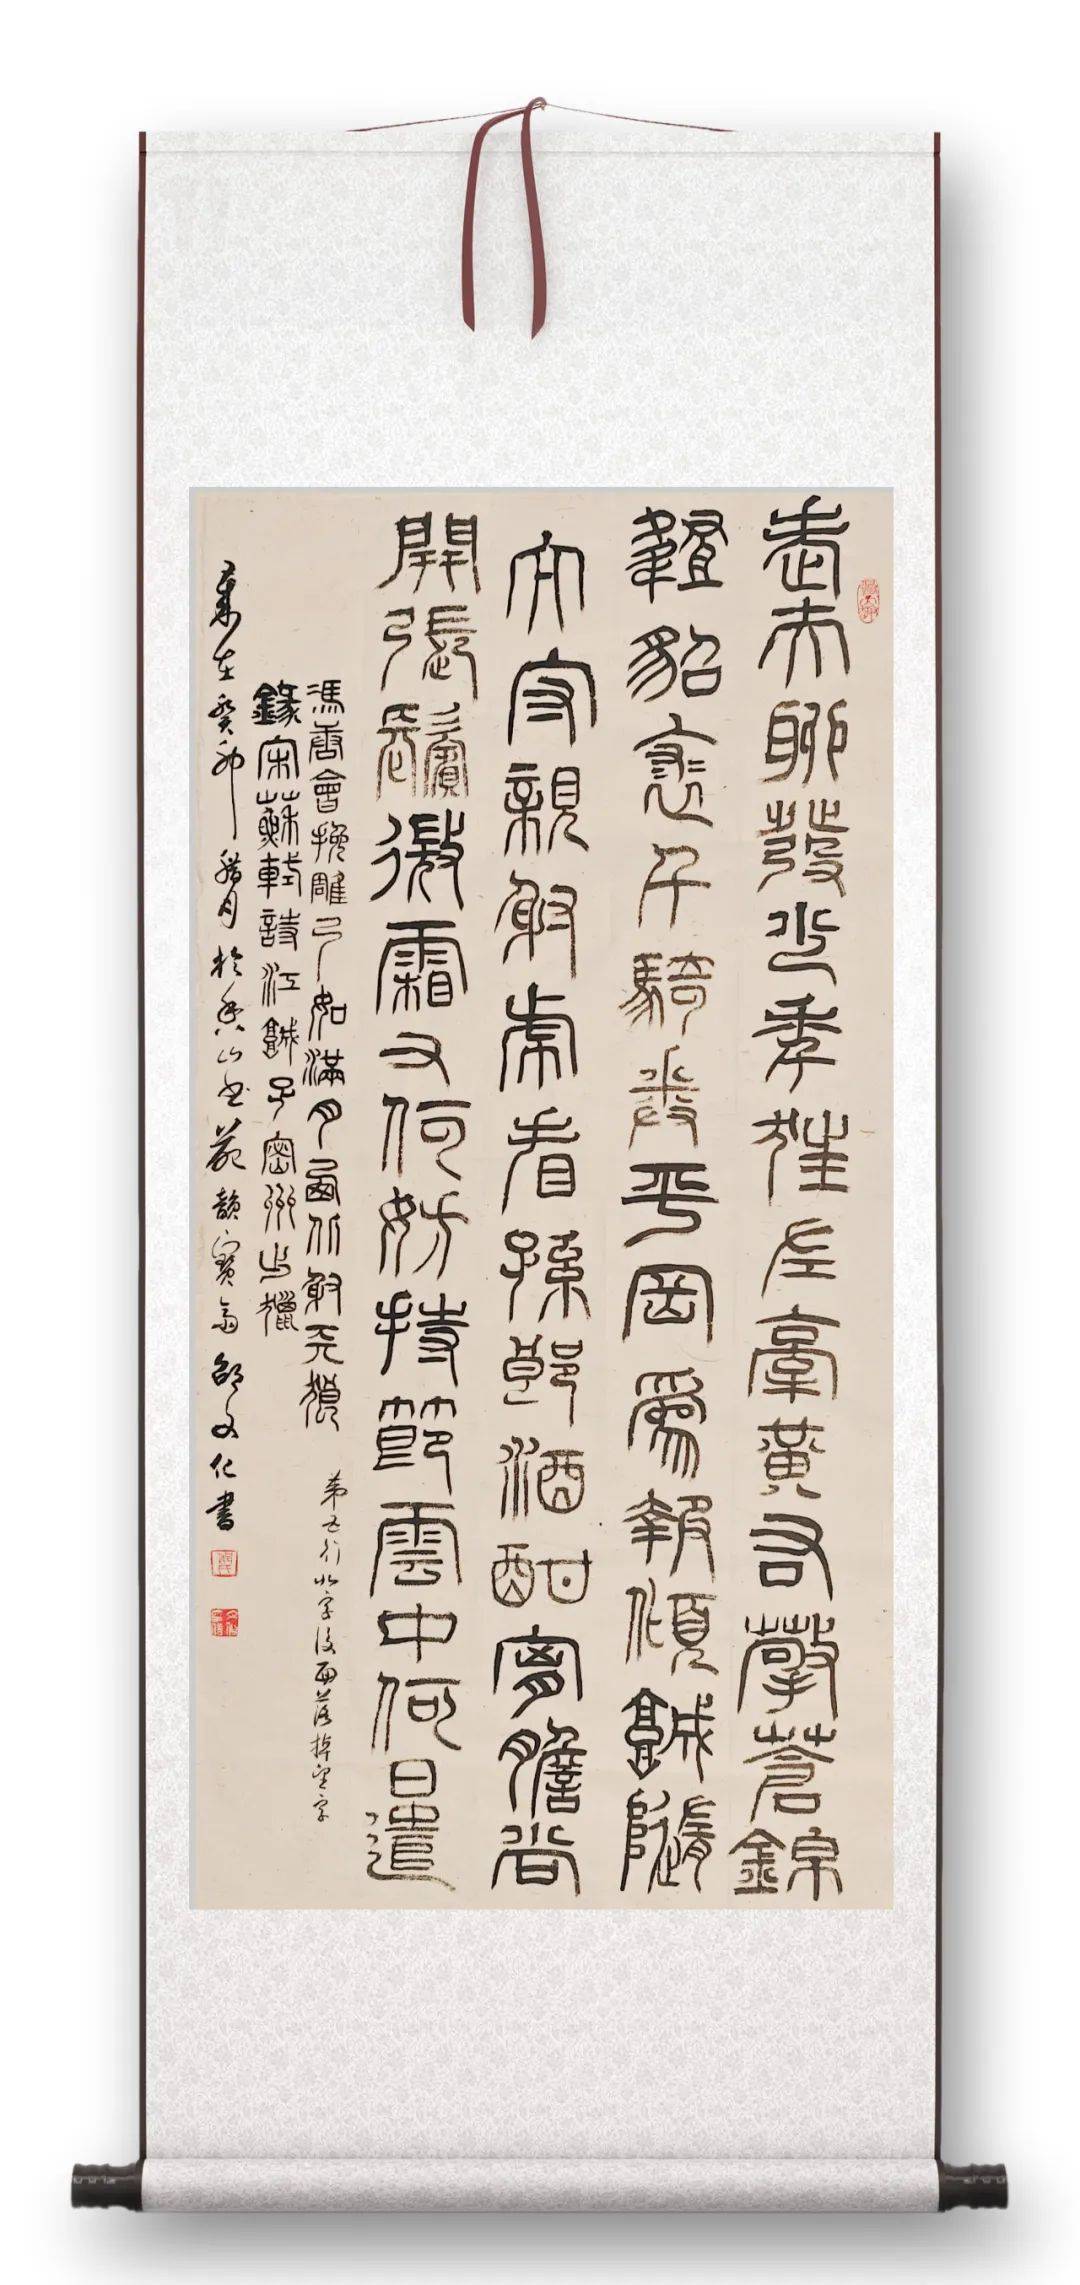 老夫聊發少年狂左牽黃右擎蒼錦
帽貂裘千騎卷平岡為報傾城隨
太守親射虎看孫郎酒酣胷膽尚
開張鬢微霜又何妨持節雲中何日遣
馮唐會挽雕弓如滿月西北射天狼
第五行北字後面落掉望字
錄宋蘇軾詩江城子密州出獵
歲在癸卯臘月於香山書苑韻寶齋邵文化書